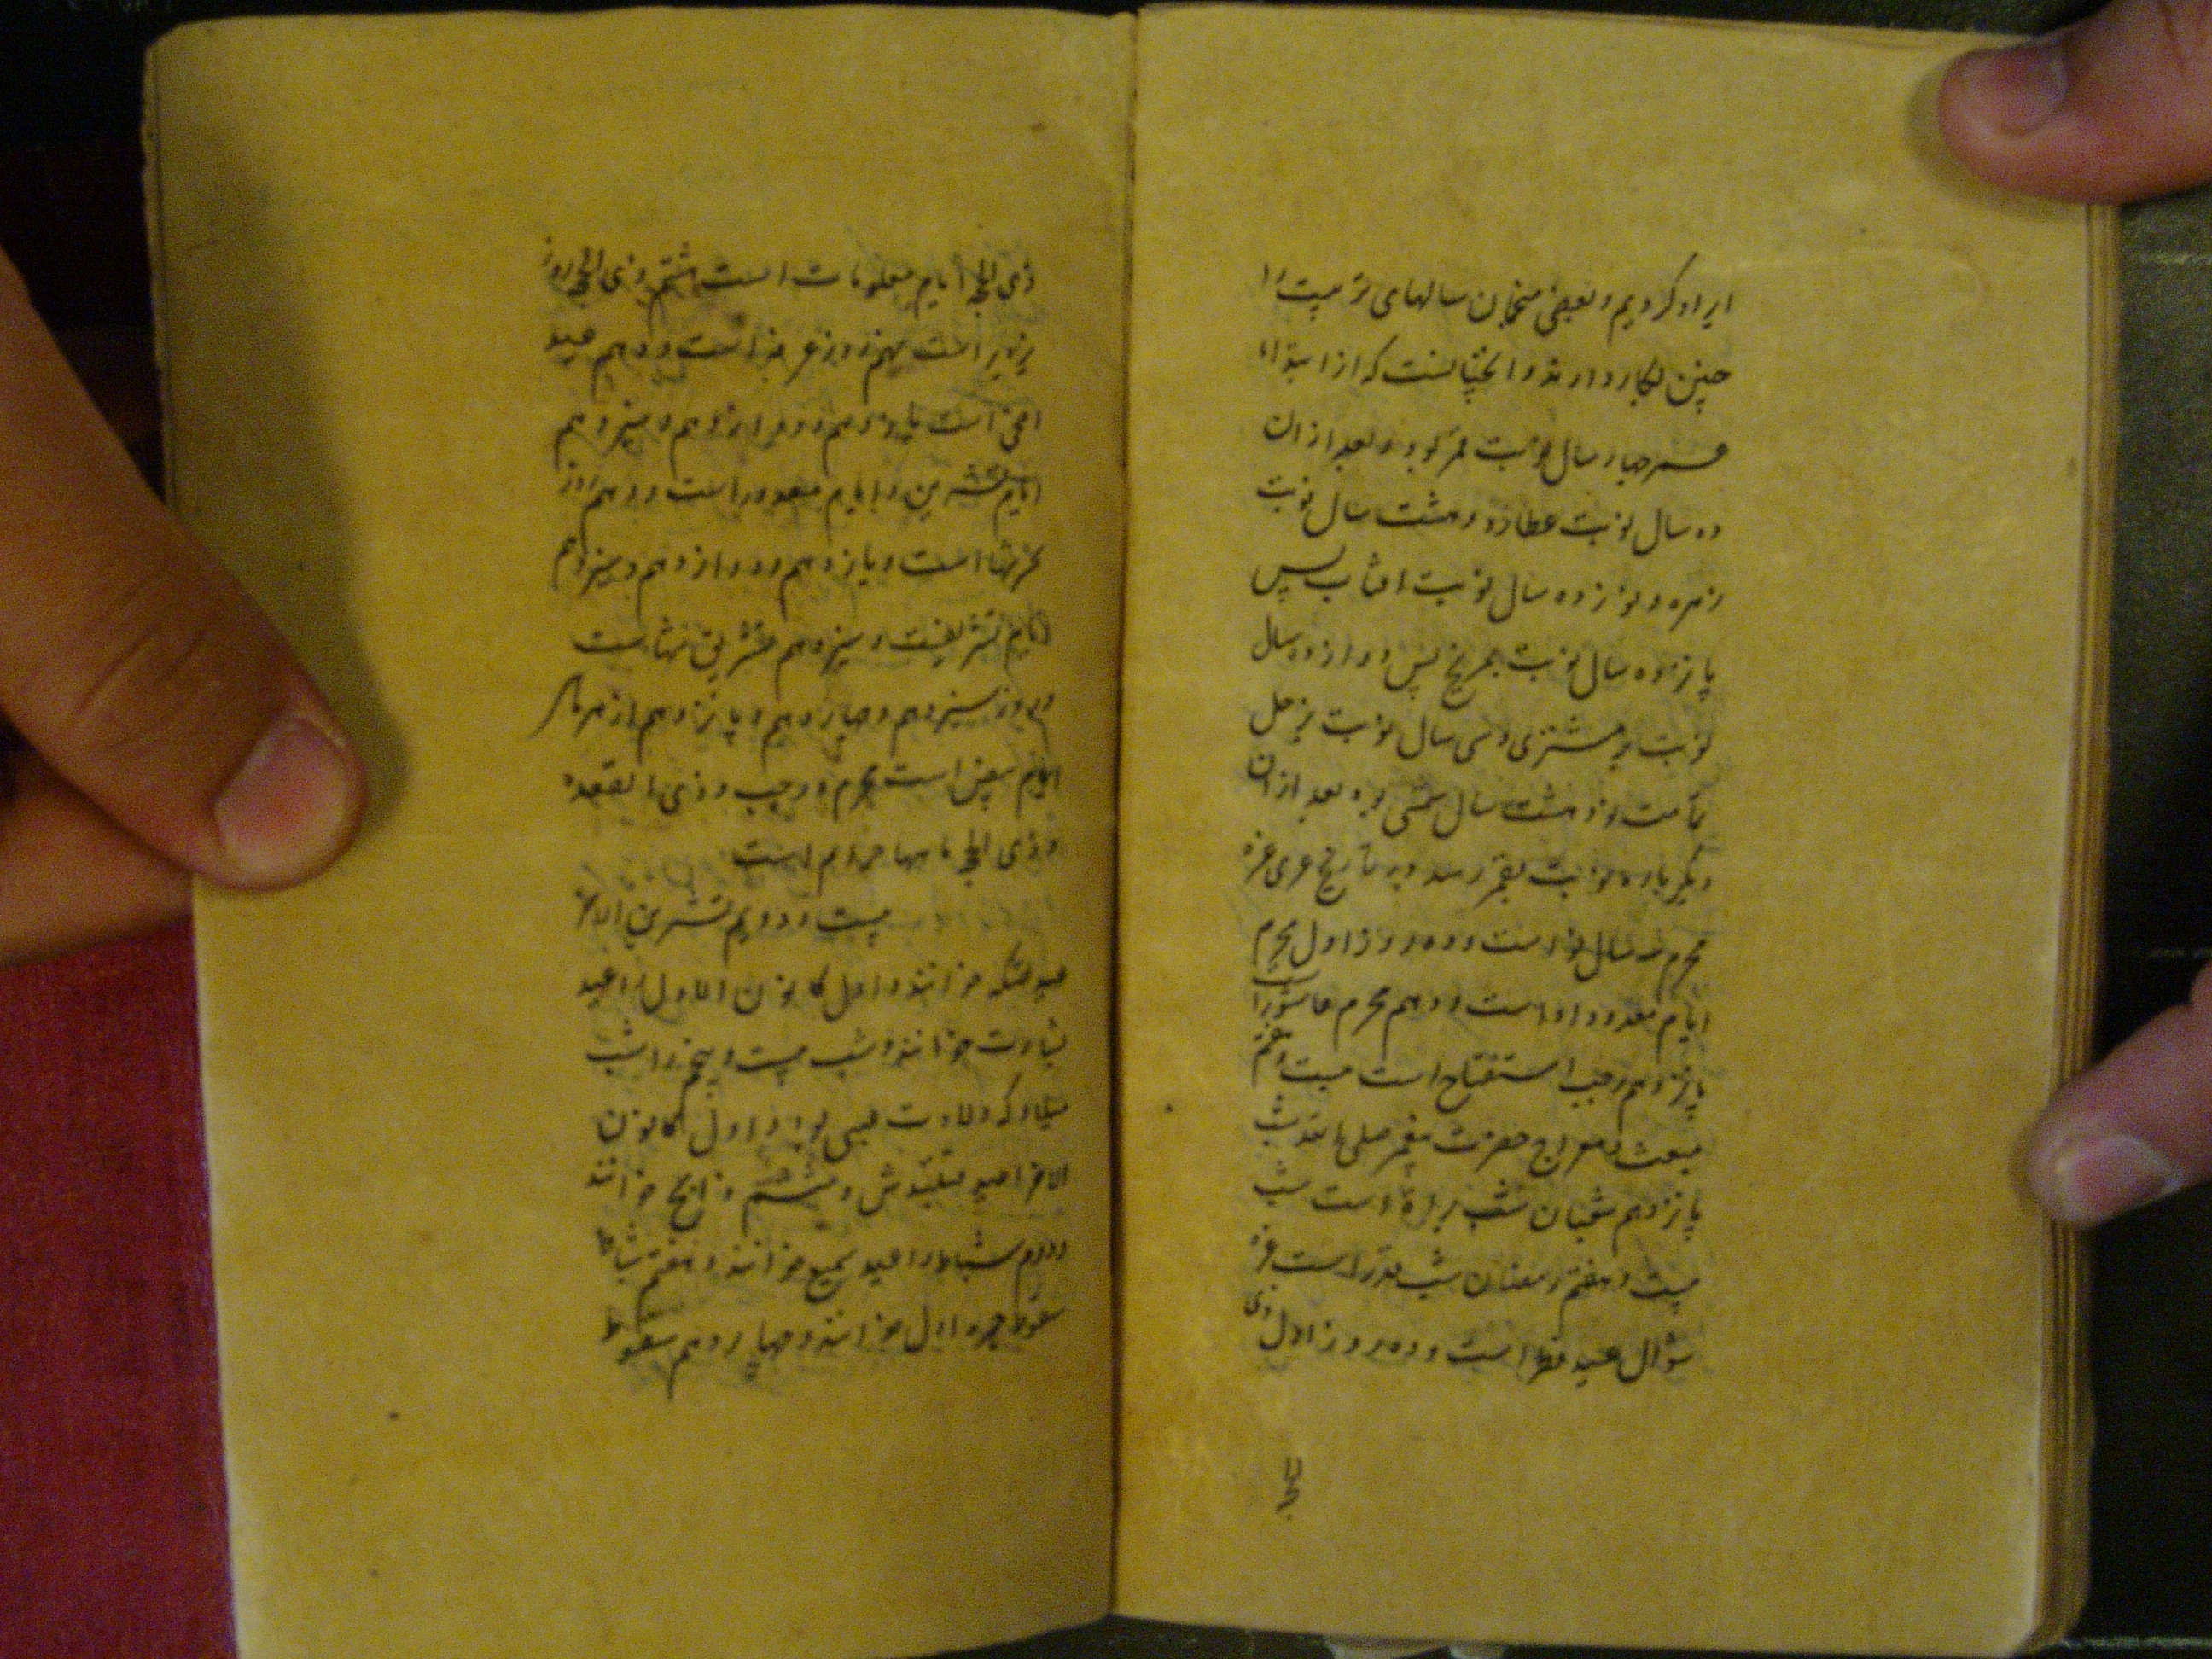 ایراد کردیم و بعضی منجمان سالهای تربیت را
چنین بکار دارند و انچنانست که از ابتداء
عمر چهار سال نوبت قمر بود و بعد از ان
ده سال نوبت عطارد و هشت سال نوبت
زهره و نوزده سال نوبت افتاب پس
پانزده سال نوبت بمریخ پس دوازده سال
نوبت به مشتری و سی سال نوبت بزحل
تمامت نود هشت سال شمسی بود بعد از ان
دیگر باره نوبت بقمر رسد و در تاریخ عربی غره
محرم سر سال نو است و ده روز اول محرم
ایام معدودات است و دهم محرم عاشورا است
پانزدهم رجب استفتاح است بیست و هفتم
مبعث و معراج حضرت پیغمبر صلی الله شب
پانزدهم شعبان شب براة است شب
بیست و هفتم رمضان شب قدر است غره
شوال عید فطر است و ده روز اول ذی
ذی الحجه ایام معلومات است هشتم ذی الحجه روز
است نهم روز عرفه است و دهم عید
اضحی است یازدهم و دوازدهم و سیزدهم
ایام تشرین و ایام معدود است و دهم روز
نحر تنها است و یازدهم و دوازدهم و سیزدهم
ایام تشریقست و سیزدهم تشریق تنهاست
و روز سیزدهم و چهاردهم و پانزدهم از هر ماه
ایام بیض است محرم و رجب و ذی القعده
و ذی الحجه ماهها حرام است
بیست و دویم تشرین الاخر
عید خوانند و اول کانون الاول را عید
بشارت خوانند و شب بیست و پنجم را شب
میلاد که ولادت عیسی بود و اول کانون
الاخر را عید و ششم خوانند
و دوم شباط را عید شمع خوانند و هفتم شباط
سقوط جمره اول خوانند و چهاردهم سقوط